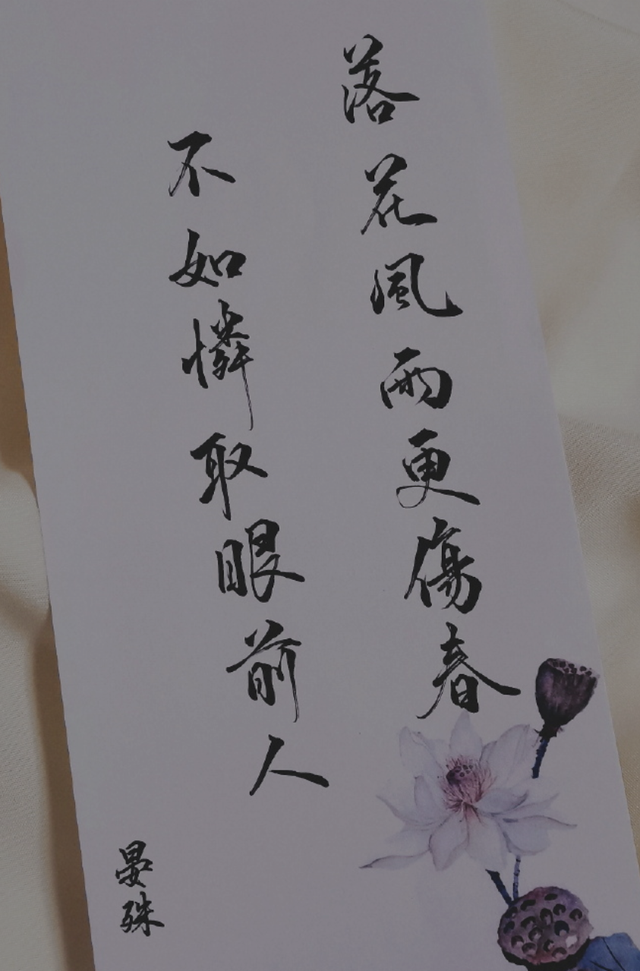 落花風雨更傷春
不如憐取眼前人
晏殊